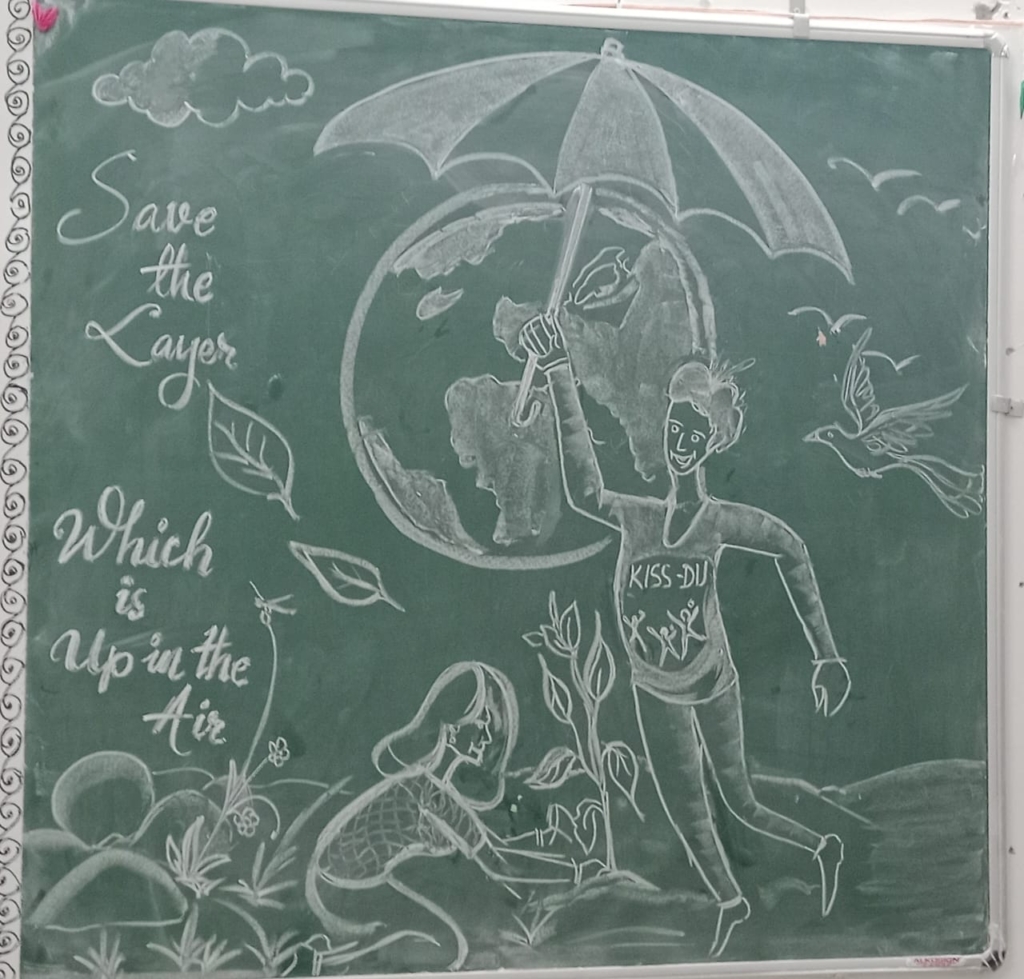 Save
the
Layer
Which
is
Up in the
Air
KISS-DU